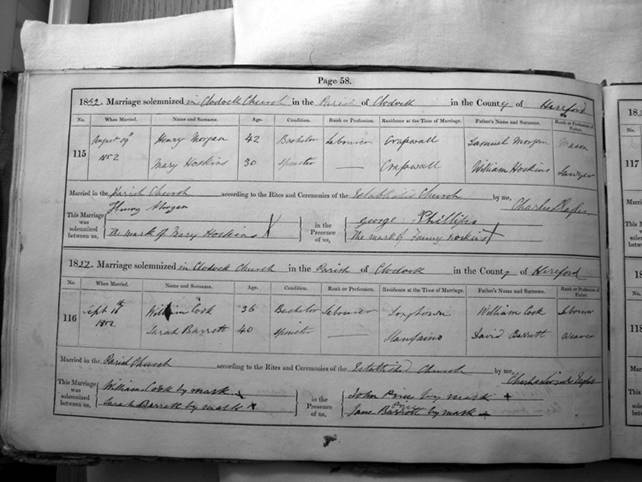 Page 58.
1852. Marriage solemnized in Clodock Church in the Parish of Clodock in the County of Hereford
No. When Married. Name and Surname. Age. Condition. Rank or Profession. Residence at the Time of Marriage. Father's Name and Surname. Rank or Profession of Father.
115 August 1852 Henry Morgan 42 Bachelor Labourer Craswall Samuel Morgan Mason
Mary Hoskins 30 Spinster — Craswall William Hoskins Sawyer
Married in the Parish Church according to the Rites and Ceremonies of the Established Church by me, Charles
This Marriage was solemnized between us, Henry Morgan in the Presence of us, George Phillips
The mark of Mary Hoskins X The mark of Fanny Hoskins X
1852. Marriage solemnized in Clodock Church in the Parish of Clodock in the County of Hereford
No. When Married. Name and Surname. Age. Condition. Rank or Profession. Residence at the Time of Marriage. Father's Name and Surname. Rank or Profession of Father.
116 Sept 1852 William Cook 36 Bachelor Labourer Longtown William Cook Labourer
Sarah Barrett 40 Spinster — David Barrett Weaver
Married in the Parish Church according to the Rites and Ceremonies of the Established Church by me, Charles
This Marriage was solemnized between us, William Cook by mark X in the Presence of us, John by mark +
Sarah Barrett by mark X Jane Barrett by mark +
18
No.
117
18
No.
118